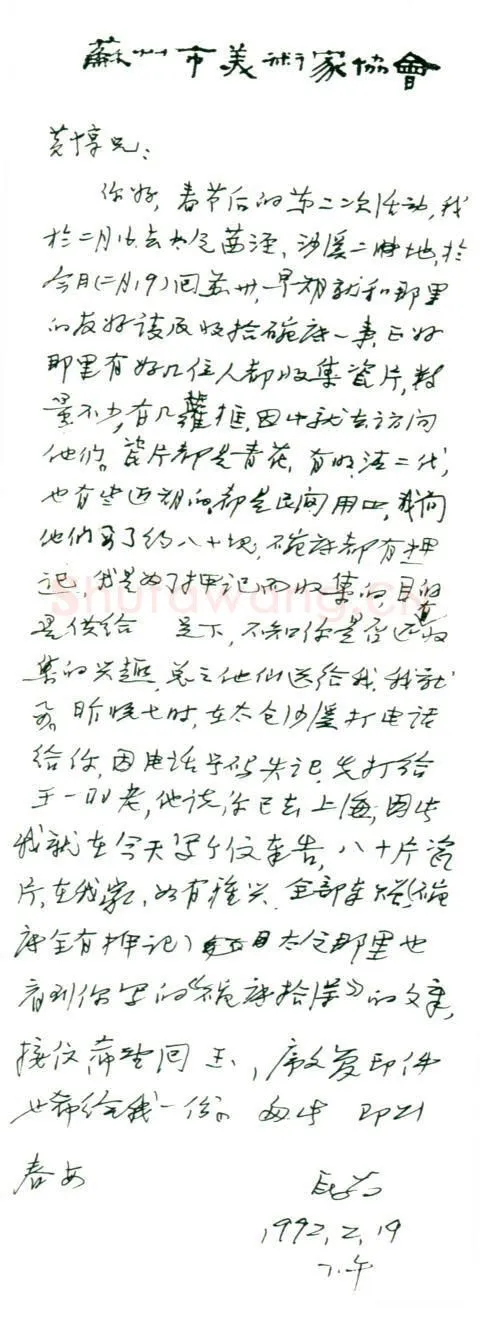 蘇州市美術家協會
黄惇兄：
你好，春节后的第二次活动，我
于二月16去太仓茜泾、沙溪二地，于
今月(二月19)回苏州，早期就和那里
的友好谈及收拾碗底一事，正好
那里有好几位人都收集瓷片，数
量不少，有几籮框，因此就去访问
他们。瓷片都是青花，有明、清二代，
也有些近期的，都是民间用品，我向
他们要了约八十块，碗底都有押
记，我是为了押记而收集的，目的
是供给 足下，不知你是否还有收
集的兴趣，总之他们送给我，我就
要。昨晚七时，在太仓沙溪打电话
给你，因电话号码失记，先打给
王一羽老，他说你已去上海，因此
我就在今天写个信奉告，八十片瓷
片，在我家，如有雅兴，全部奉赠(碗
底全有押记) 太仓那里也
看到你写的《碗底拾萃》的文章，
接信希望回玉，原文复印件
也希给我一份。匆此 即颂
春安
1992.2.19
下午
Shufawang.cn